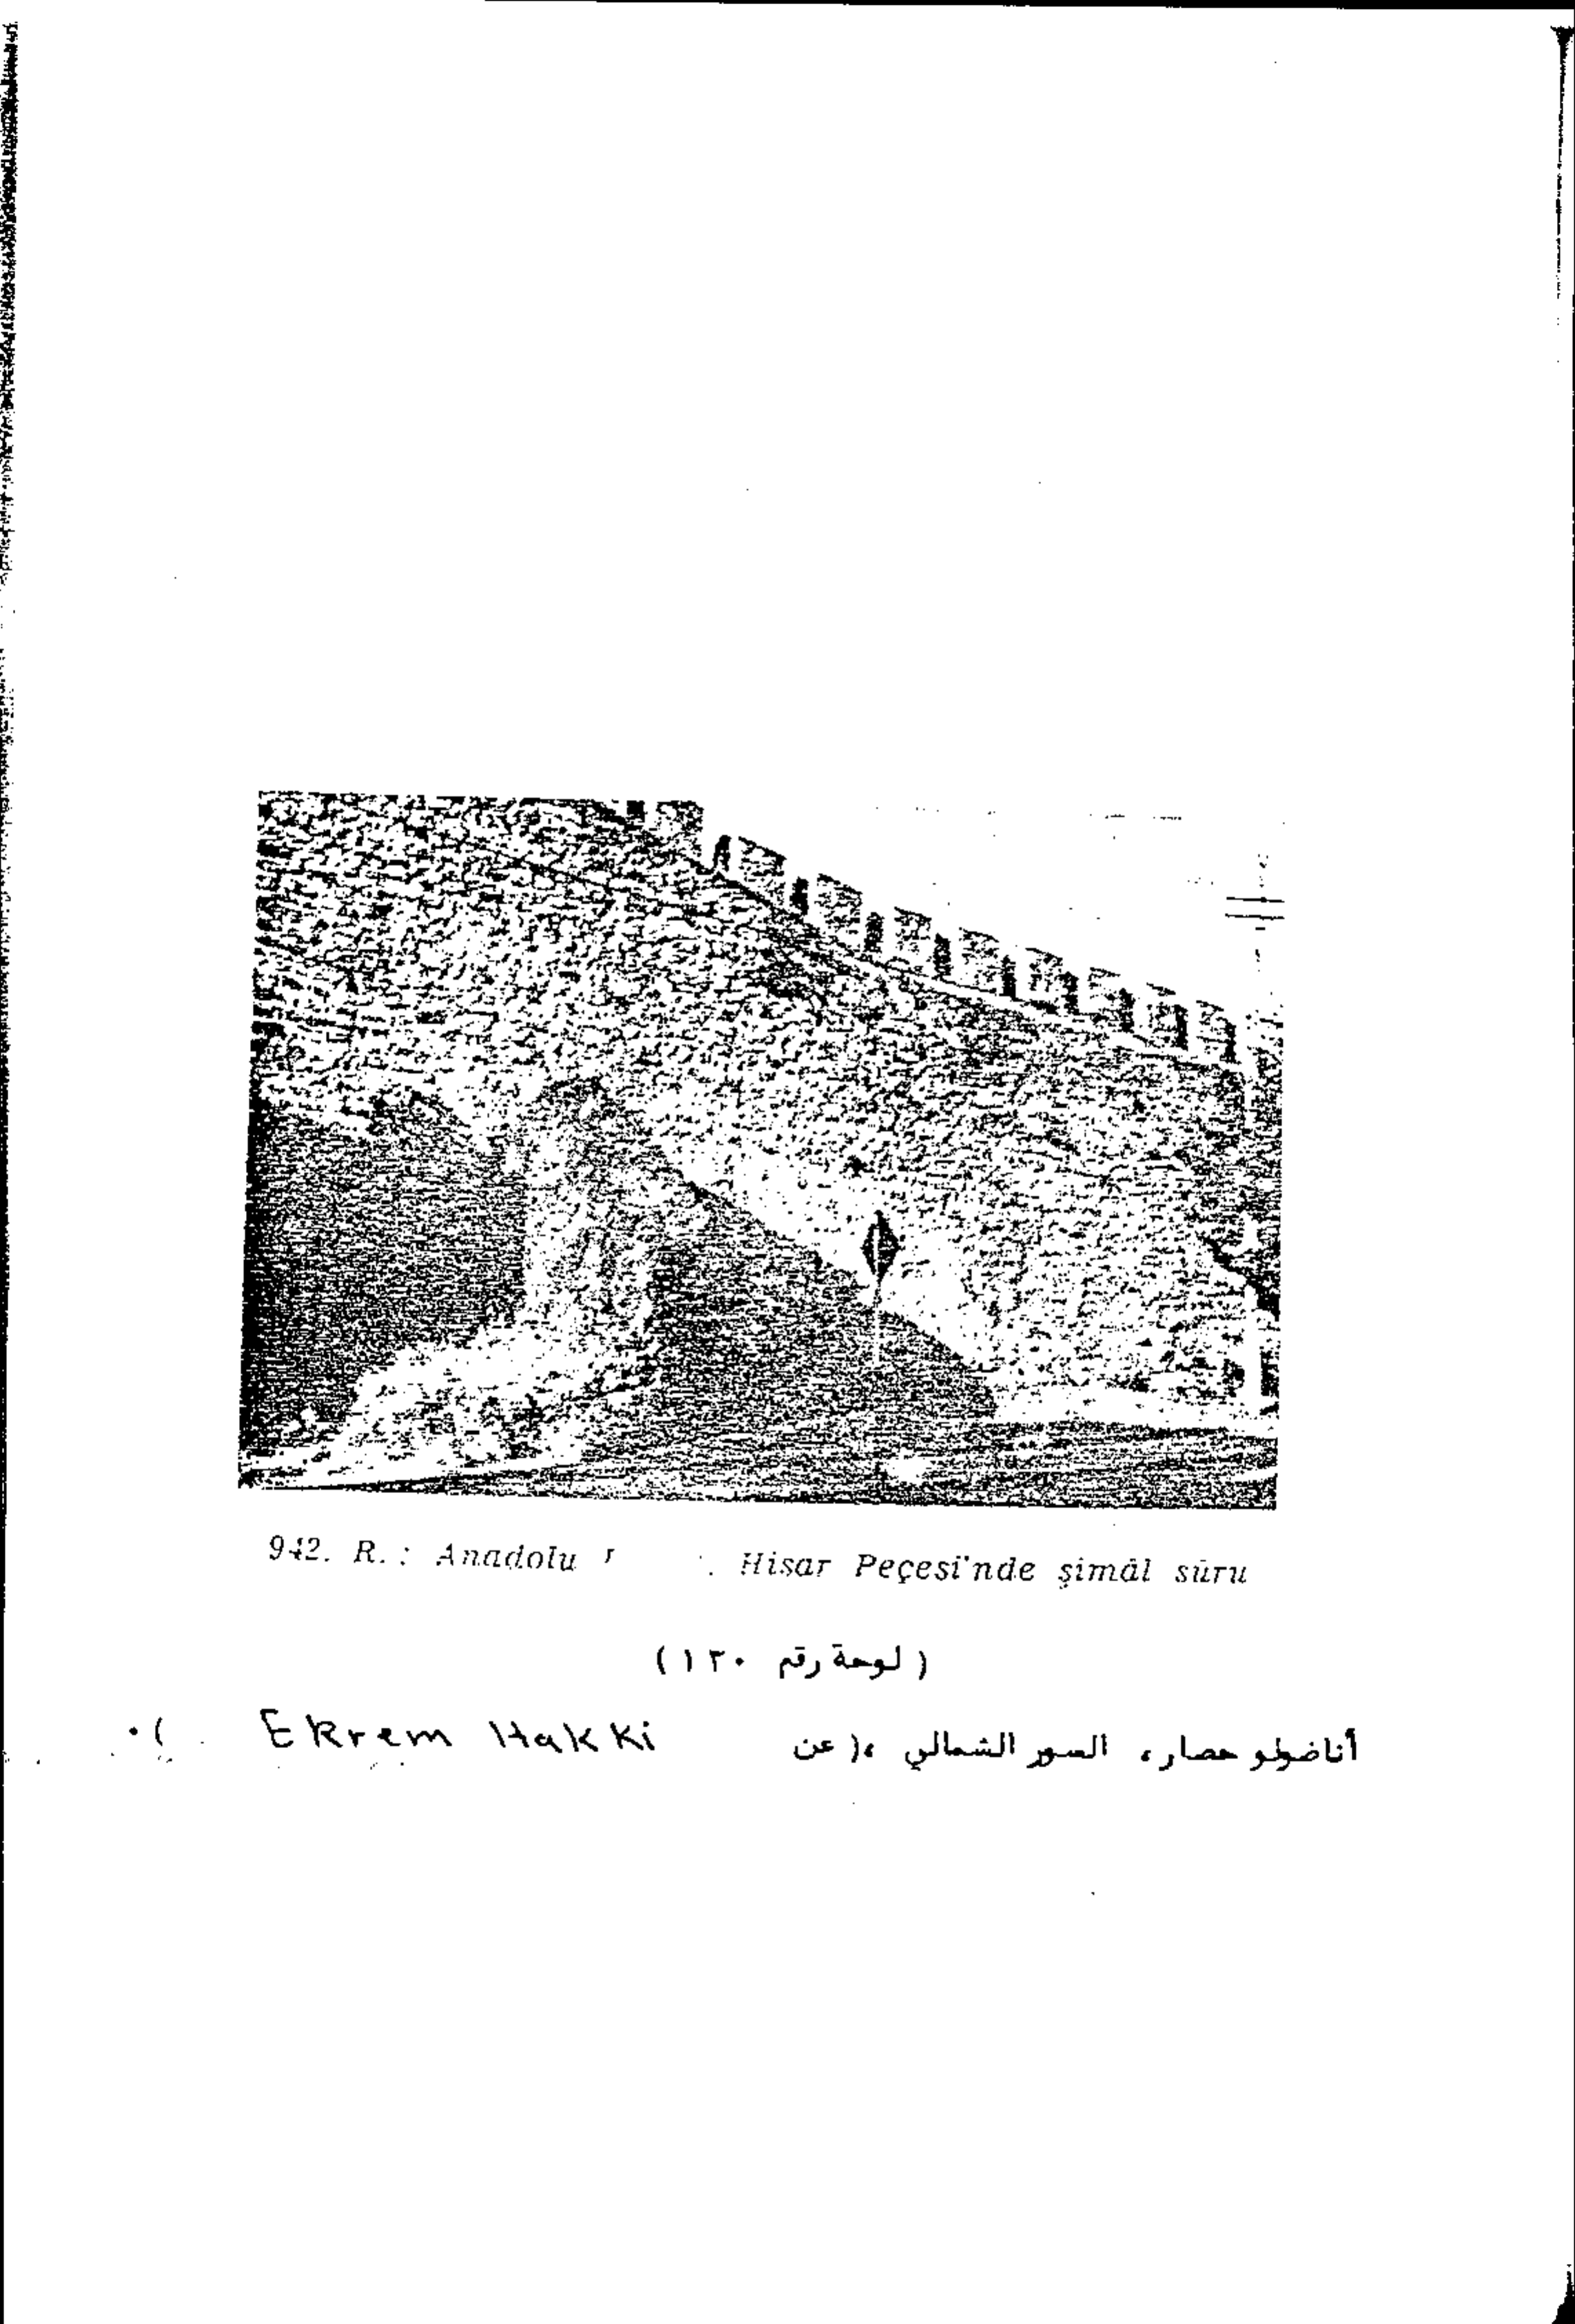 942. R.: Anadolu Hisar Peçesi'nde şimâl sûru
( لوحة رقم ١٢٠ )
أناضولو حصار، السور الشمالي ،( عن Ekrem Hakki ).